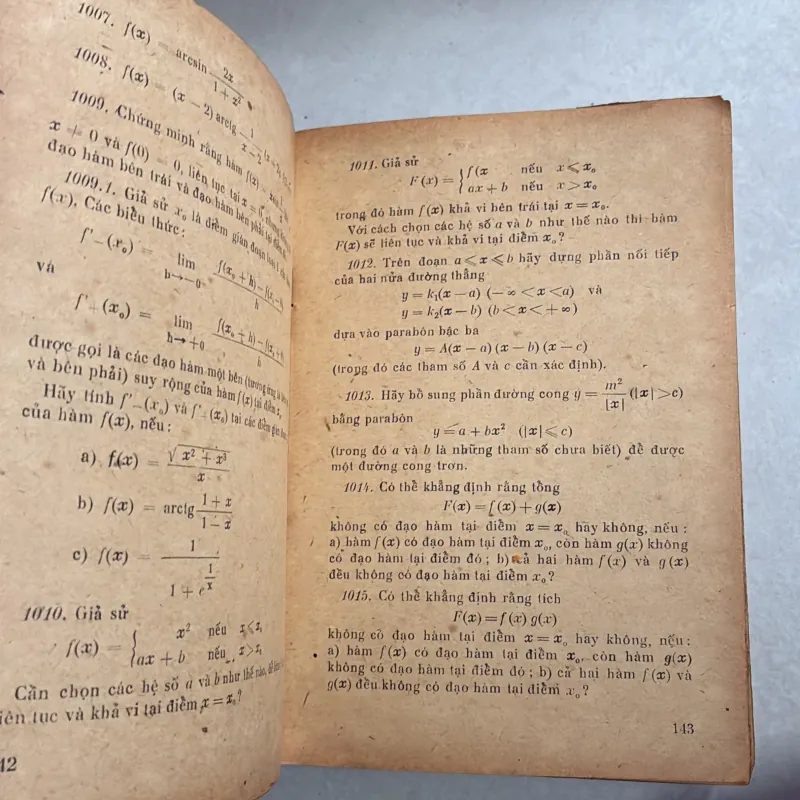 1007. f(x) = arcsin 2x / 1 + x²
1008. f(x) = (x − 2) arctg 1 / x − 2
1009. Chứng minh rằng hàm f(x) =
x ≠ 0 và f(0) = 0, liên tục tại x = 0,
đạo hàm bên trái và đạo hàm bên phải tại
1009.1. Giả sử x₀ là điểm gián đoạn loại 1
f(x), Các biểu thức:
f'₋(x₀) = lim h→−0 f(x₀ + h) − f(x₀ − 0) / h
và
f'₊(x₀) = lim h→+0 f(x₀ + h) − f(x₀ + 0) / h
được gọi là các đạo hàm một bên (tương ứng là bên
và bên phải) suy rộng của hàm f(x) tại điểm x₀
Hãy tính f'₋(x₀) và f'₊(x₀) tại các điểm gián
của hàm f(x), nếu:
a) f(x) = √x² + x³ / x
b) f(x) = arctg 1 + x / 1 − x
c) f(x) = 1 / 1 + e^(1/x)
1010. Giả sử
f(x) = { x² nếu x ⩽ x₀
ax + b nếu x > x₀
Cần chọn các hệ số a và b như thế nào, để
liên tục và khả vi tại điểm x = x₀?
12
1011. Giả sử
F(x) = { f(x nếu x ⩽ x₀
ax + b nếu x > x₀
trong đó hàm f(x) khả vi bên trái tại x = x₀.
Với cách chọn các hệ số a và b như thế nào thì hàm
F(x) sẽ liên tục và khả vi tại điểm x₀?
1012. Trên đoạn a ⩽ x ⩽ b hãy dựng phần nối tiếp
của hai nửa đường thẳng
y = k₁(x − a) (− ∞ < x < a) và
y = k₂(x − b) (b < x < + ∞)
dựa vào parabôn bậc ba
y = A(x − a) (x − b) (x − c)
(trong đó các tham số A và c cần xác định).
1013. Hãy bổ sung phần đường cong y = m² / |x| (|x| > c)
bằng parabôn
y = a + bx² (|x| ⩽ c)
(trong đó a và b là những tham số chưa biết) để được
một đường cong trơn.
1014. Có thể khẳng định rằng tổng
F(x) = f(x) + g(x)
không có đạo hàm tại điểm x = x₀ hay không, nếu:
a) hàm f(x) có đạo hàm tại điểm x₀, còn hàm g(x) không
có đạo hàm tại điểm đó; b) cả hai hàm f(x) và g(x)
đều không có đạo hàm tại điểm x₀?
1015. Có thể khẳng định rằng tích
F(x) = f(x) g(x)
không có đạo hàm tại điểm x = x₀ hay không, nếu:
a) hàm f(x) có đạo hàm tại điểm x₀, còn hàm g(x)
không có đạo hàm tại điểm đó; b) cả hai hàm f(x) và
g(x) đều không có đạo hàm tại điểm x₀?
143